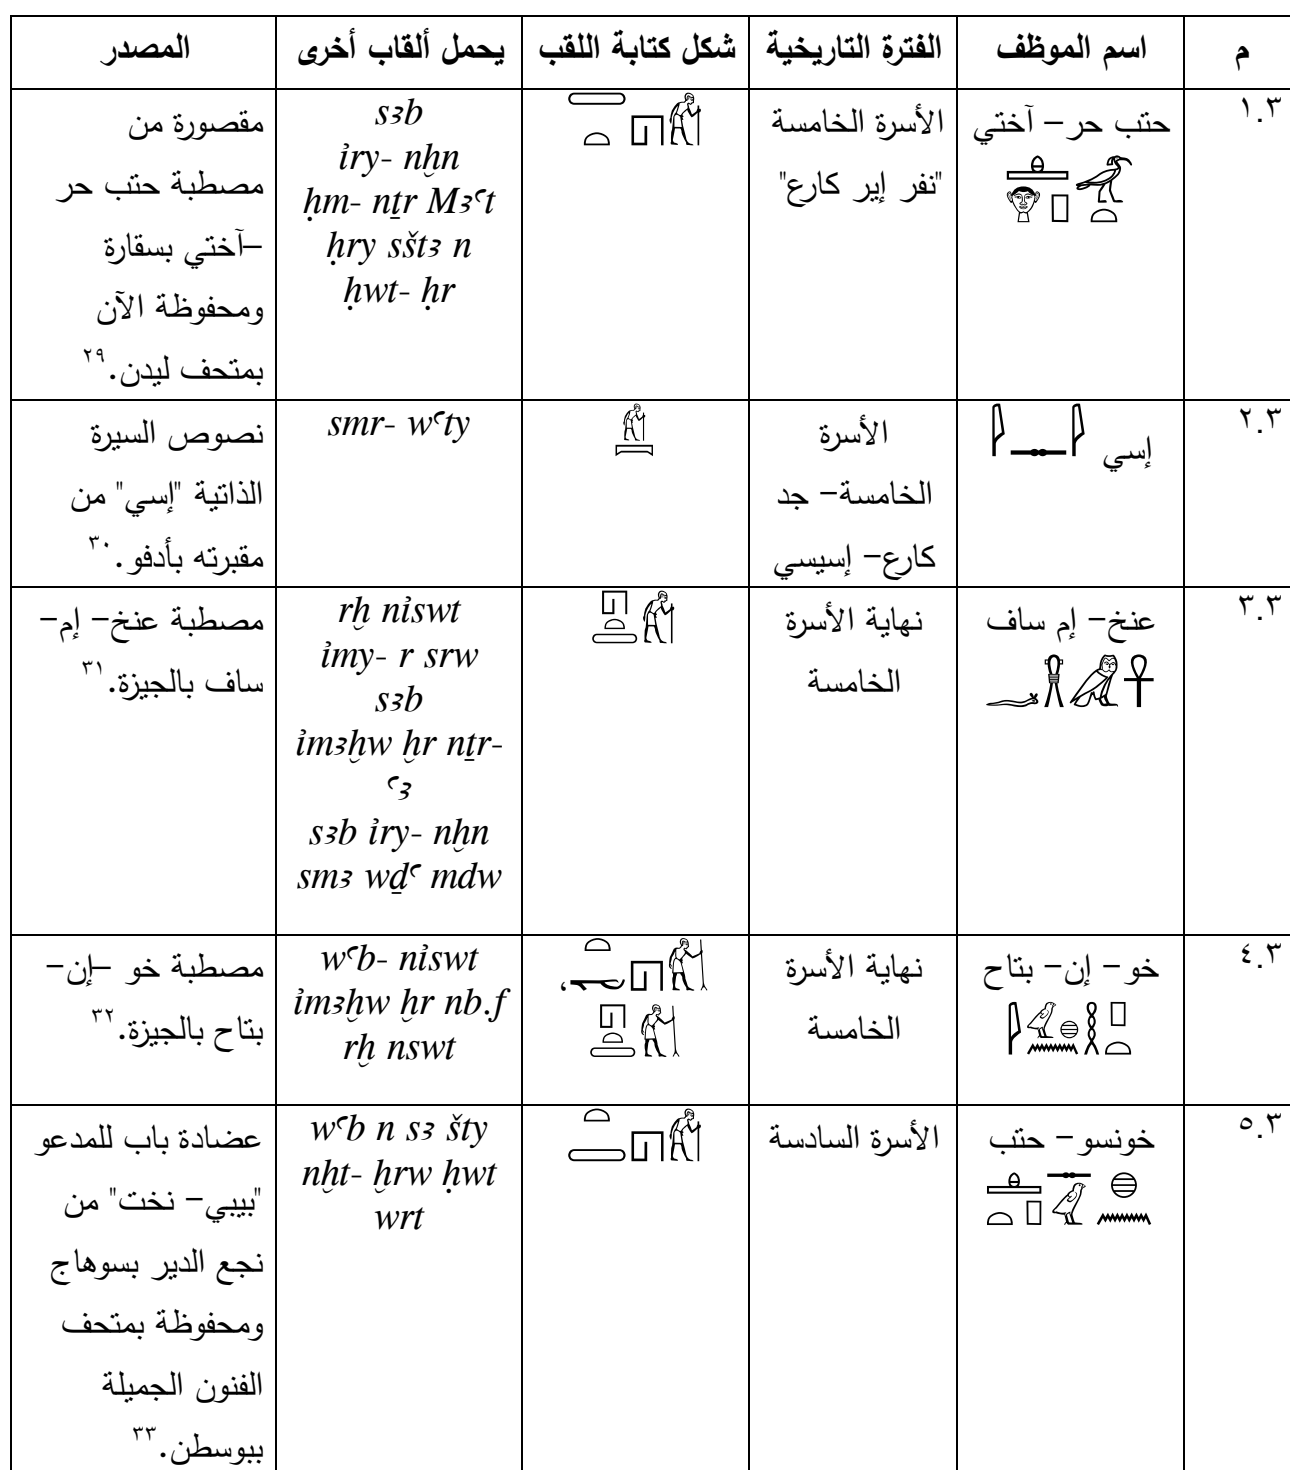 م	اسم الموظف	الفترة التاريخية	شكل كتابة اللقب	يحمل ألقاب أخرى	المصدر
١.٣
حتب حر– آختي
الأسرة الخامسة
"نفر إير كارع"
sꜣb
ỉry- nḫn
ḥm- nṯr Mꜣꜥt
ḥry sštꜣ n
ḥwt- ḥr
مقصورة من
مصطبة حتب حر
–آختي بسقارة
ومحفوظة الآن
بمتحف ليدن.٢٩
٢.٣
إسي
الأسرة
الخامسة– جد
كارع– إسيسي
smr- wꜥty
نصوص السيرة
الذاتية "إسي" من
مقبرته بأدفو.٣٠
٣.٣
عنخ– إم ساف
نهاية الأسرة
الخامسة
rḫ nỉswt
ỉmy- r srw
sꜣb
ỉmꜣḫw ḫr nṯr-
ꜥꜣ
sꜣb ỉry- nḫn
smꜣ wḏꜥ mdw
مصطبة عنخ– إم–
ساف بالجيزة.٣١
٤.٣
خو– إن– بتاح
نهاية الأسرة
الخامسة
wꜥb- nỉswt
ỉmꜣḫw ḫr nb.f
rḫ nswt
مصطبة خو –إن–
بتاح بالجيزة.٣٢
٥.٣
خونسو– حتب
الأسرة السادسة
wꜥb n sꜣ šty
nḫt- ḫrw ḥwt
wrt
عضادة باب للمدعو
"بيبي– نخت" من
نجع الدير بسوهاج
ومحفوظة بمتحف
الفنون الجميلة
ببوسطن.٣٣